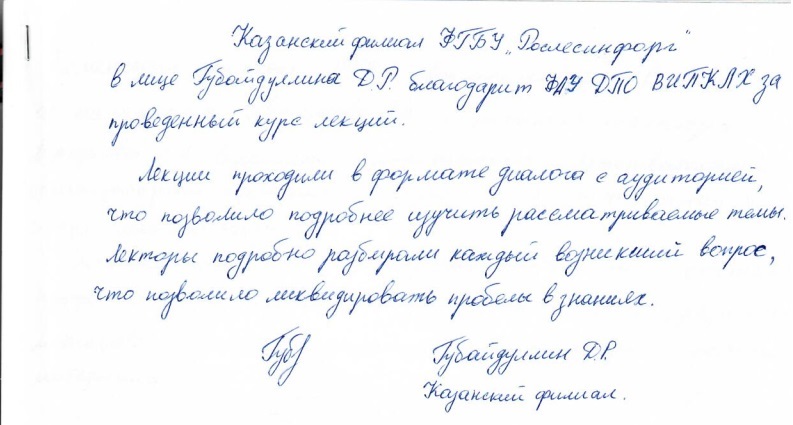 Казанский филиал ФГБУ „Рослесинфорг"
в лице Губайдуллина Д.Р. благодарит ФАУ ДПО ВИПКЛХ за
проведенный курс лекций.
Лекции проходили в формате диалога с аудиторией,
что позволило подробнее изучить рассматриваемые темы.
Лекторы подробно разбирали каждый возникший вопрос,
что позволило ликвидировать пробелы в знаниях.
Губайдуллин Д.Р.
Казанский филиал.